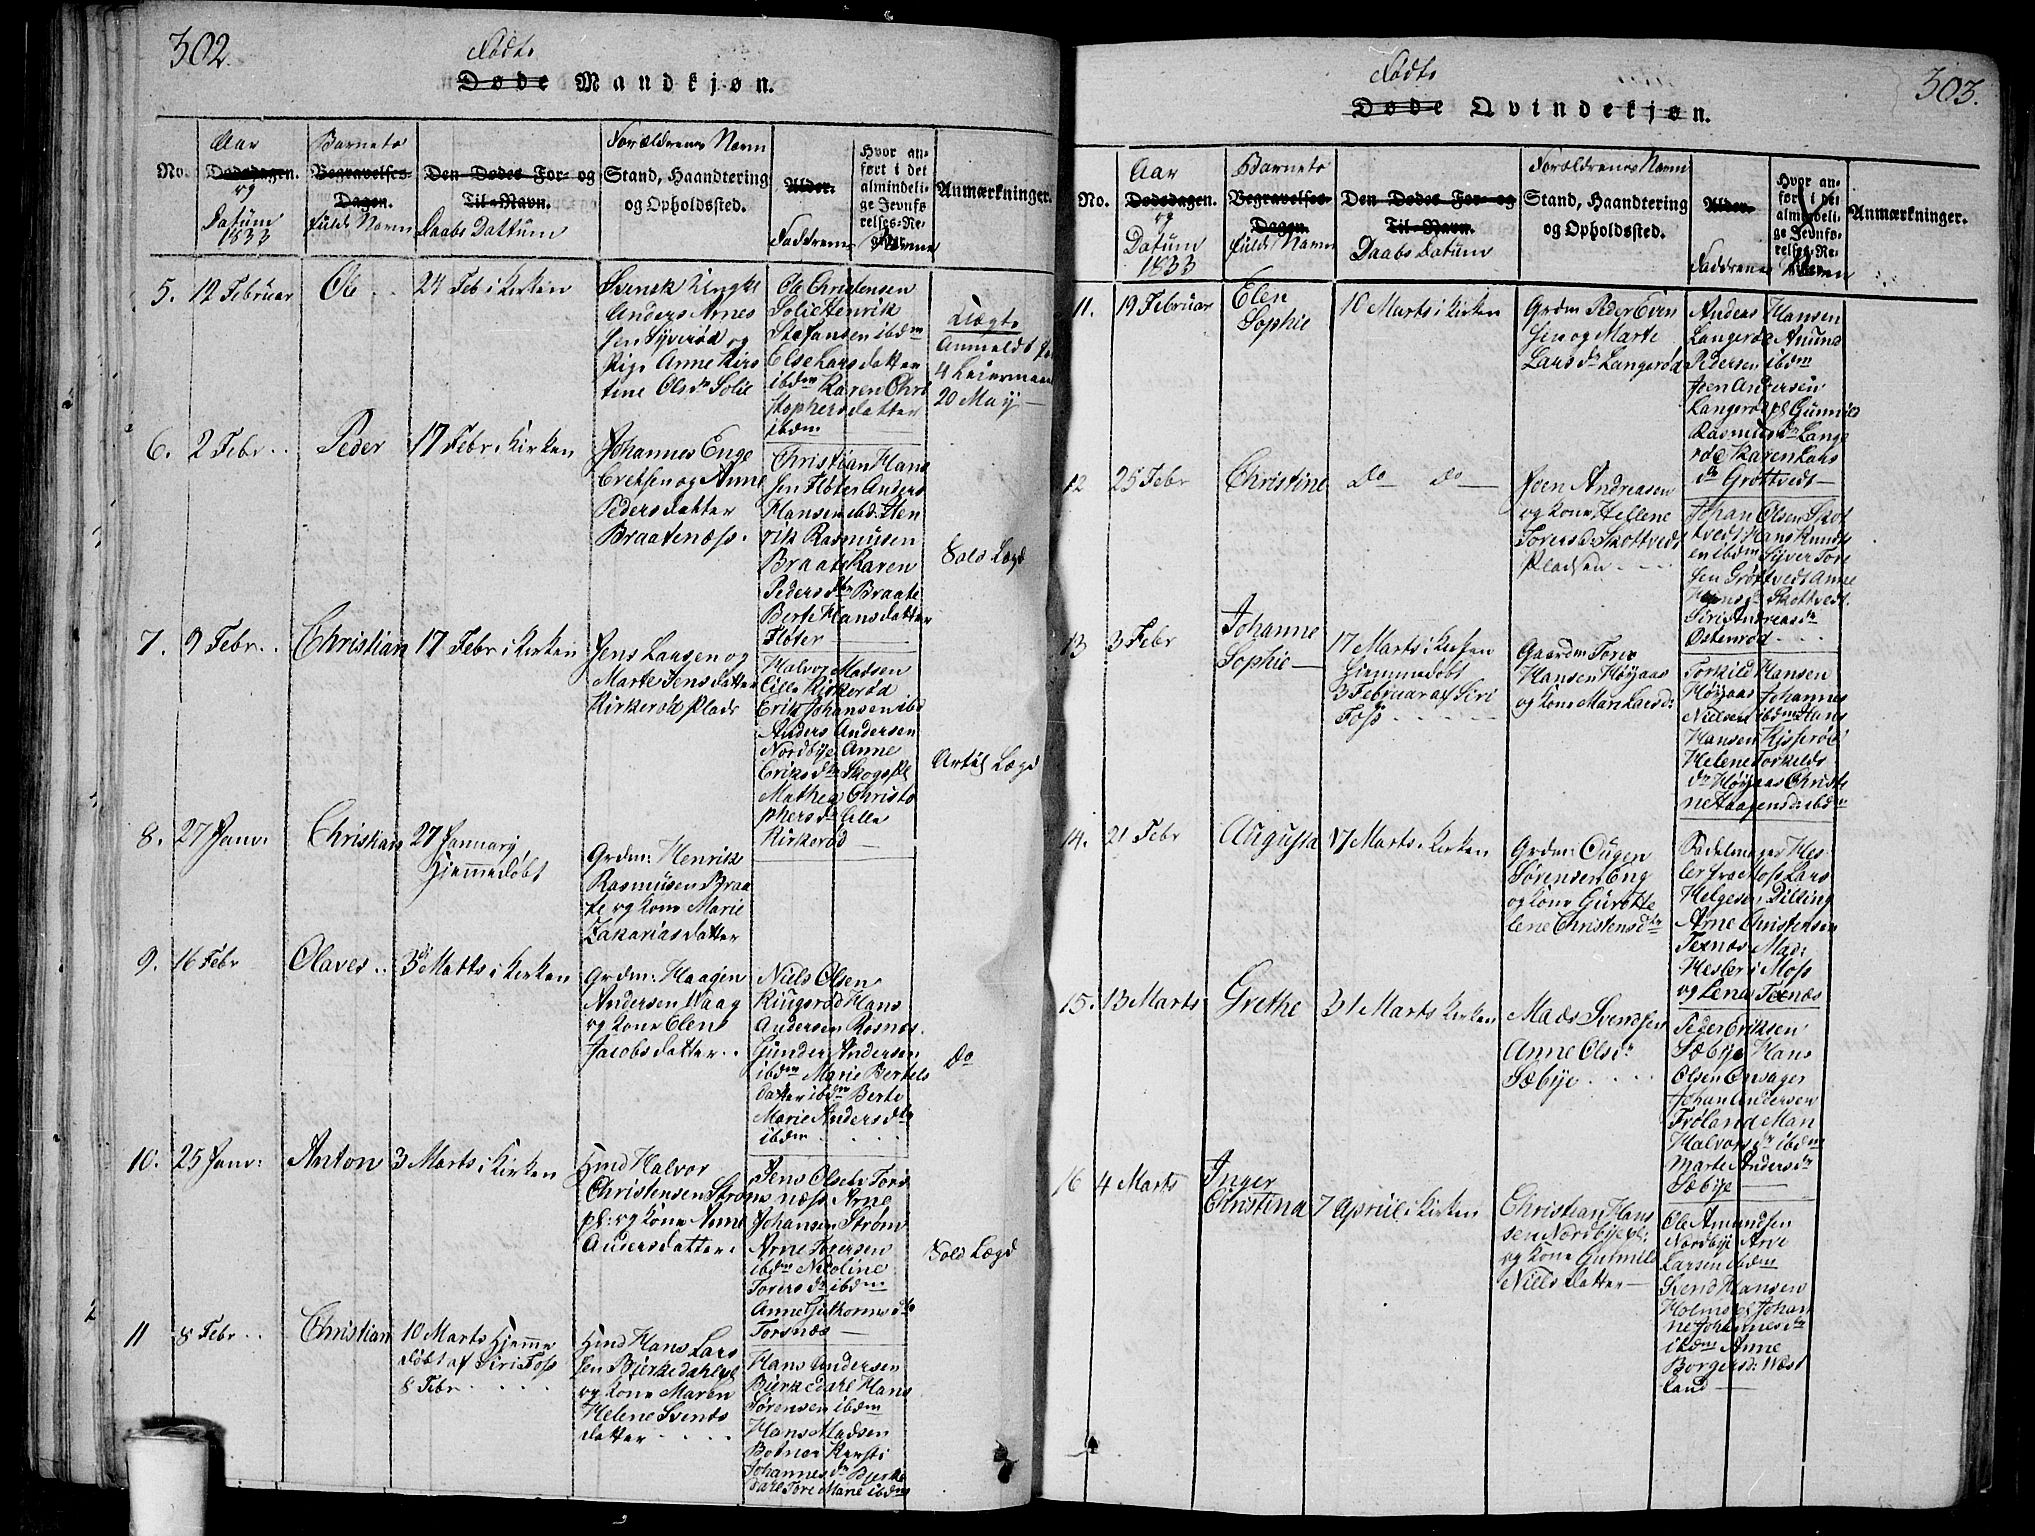 302.
Fødte
Døde Mandkjøn.
No.
Aar
Dødsdagen.
og
Datum
1833
Barnets
Begravelses-
Dagen.
fulde Navn
Den Dødes For- og
Til-Navn.
Daabs Dattum
Forældrenes Navn
Stand, Haandtering
og Opholdssted.
Alder.
Faddrenes
Hvor an-
ført i det
almindeli-
ge Jevnfø-
relses-Re-
Navne
Anmærkninger.
5. 12 Februar
Ole
24 Feb i Kirken
Anders Arne
sen Syverød og
Pige Anne Kirs
tine Olsdr Solie
Ole Christensen
Solie Henrik
Stefansen ibdm
Else Larsdatter
ibdm Karen Chri
stophersdatter
ibdm
Anmeldt
4 Leiermaal
20 May
6. 2 Febr
Peder
17 Febr i Kirken
Johannes Enge
bretsen og Anne
Pedersdatter
Braatenæss.
Christian Hans
sen Fløter Anders
Hansen ibd: Hen
rik Rasmusen
Braate Karen
Pedersdtr Braate
Berte Hansdatter
Fløter
Sold Lægd
7. 9 Febr
Christian
17 Febr i Kirken
Jens Larsen og
Marte Jensdatter
Kirkerød Plads
Halvor Madsen
Lille Kirkerød
Erik Johansen ibd
Anders Andersen
Nordbye Anne
Eriksdtr Skogspl
Mathea Christo
phersdr Lille
Kirkerød
Artil Lægd
8. 27 Janv:
Christian
27 Januarij
Hjemmedøbt
Grdm: Henrik
Rasmusen Braa
te og Kone Marie
Zakariasdatter
9. 16 Febr
Olaves
3 Marts i Kirken
Grdm: Haagen
Andersen Vaag
og Kone Elen
Jacobsdatter
Niels Olsen
Ringsrød Hans
Andersen Rosnæs
Gunder Andersen
ibdm Marie Bertels
datter ibdm Berte
Marie Andersdtr
ibdm
Do
10. 25 Janv:
Anton
3 Marts i Kirken
Hmd Halvor
Christensen Strøms
pl: og Kone Anne
Andersdatter.
Jens Olsen Tors
næss Arne
Johansen Strøm
Arne Toresen
ibdm Nicoline
Toresdr ibdm
Anne Gutormsdtr
Torsnæs
Sold Lægd
11 8 Febr
Christian
10 Marts Hjemme
døbt af Siri Foss
8 Febr
Hmd Hans Lars
sen Bjerkedahlspl
og Kone Maren
Helene Svends
datter
Hans Andersen
Bjerkedahl Hans
Sørensen ibdm
Hans Madsen
Botner Kersti
Johannesdr Bjerke
dahl Tore Marie ibdm
303.
Fødte
Døde Qvindekjøn.
No.
Aar
Dødsdagen.
og
Datum
1833
Barnets
Begravelses-
Dagen.
fulde Navn
Den Dødes For- og
Til-Navn.
Daabs Datum
Forældrenes Navn
Stand, Haandtering
og Opholdssted.
Alder.
Faddrenes
Hvor an-
ført i det
almindeli-
ge Jevnfø-
relses-Re-
Anmærkninger.
11. 19 Februar
Elen
Sophie
10 Marts i Kirken
Grdm Peder Even
sen og Marte
Larsdr Langerød
Anders Hansen
Langerød Amund
Pedersen ibdm
Iven Andersen
Langerød pl Gunnil
Rasmusdr Lange
rød Karen Lars
dr Grøttvedt
12 25 Febr
Christine
Do Do
Iven Andreasen
og Kone Hellene
Toresdr Skottvedt
Pladsen
Johan Olsen Skot
tvedt Hans Knuds
en ibdm Syver Tore
sen Grøttvedt Anne
Hansdr Skottvedt
Siri Andreasdr
Ostenrød
13 3 Febr
Johanne
Sophie
17 Marts i Kirken
Hjemmedøbt
3 Februar af Siri
Foss
Gaardm Tore
Hansen Høyaas
og Kone Mari Larsd:
Torkild Hansen
Høyaas Johannes
Nielsen ibdm Hans
Hansen Kisserød
Helene Torkilds
dr Høyaas Christi
ne Haagensd: ibdm
14. 21 Febr
Augusta
17 Marts i Kirken
Grdm: Ougen
Sørensen Eng
og Kone Guro He
lene Christensdtr
Sadelmager Hes
ler fra Moss Lars
Helgesen Dilling
Arne Christensen
Texnæs Mad:
Hesler i Moss
og Lena Texnæs
15. 13 Marts
Grethe
31 Marts Kirken
Mads Svendsen
Anne Olsdr
Sæbye
Peder Eriksen
Sæbye Hans
Olsen Onsager
Johan Andersen
Frøland Mari
Halvorsdr ibdm
Marte Andersdr
Sæbye
16 4 Marts
Inger
Christina
7 Apriil i Kirken
Christian Hans
sen Nordbye pl:
og Kone Gunnild
Nielsdatter
Ole Amundsen
Nordbye Arve
Larsen ibdm
Svend Hansen
Holms pl Johan
ne Johannesdtr
ibdm Anne
Borgersd: Vest
land